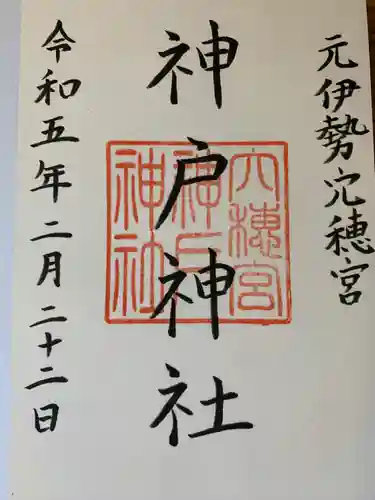 元伊勢宍穂宮
神戸神社
宍穂宮
神戸
神社
令和五年二月二十二日